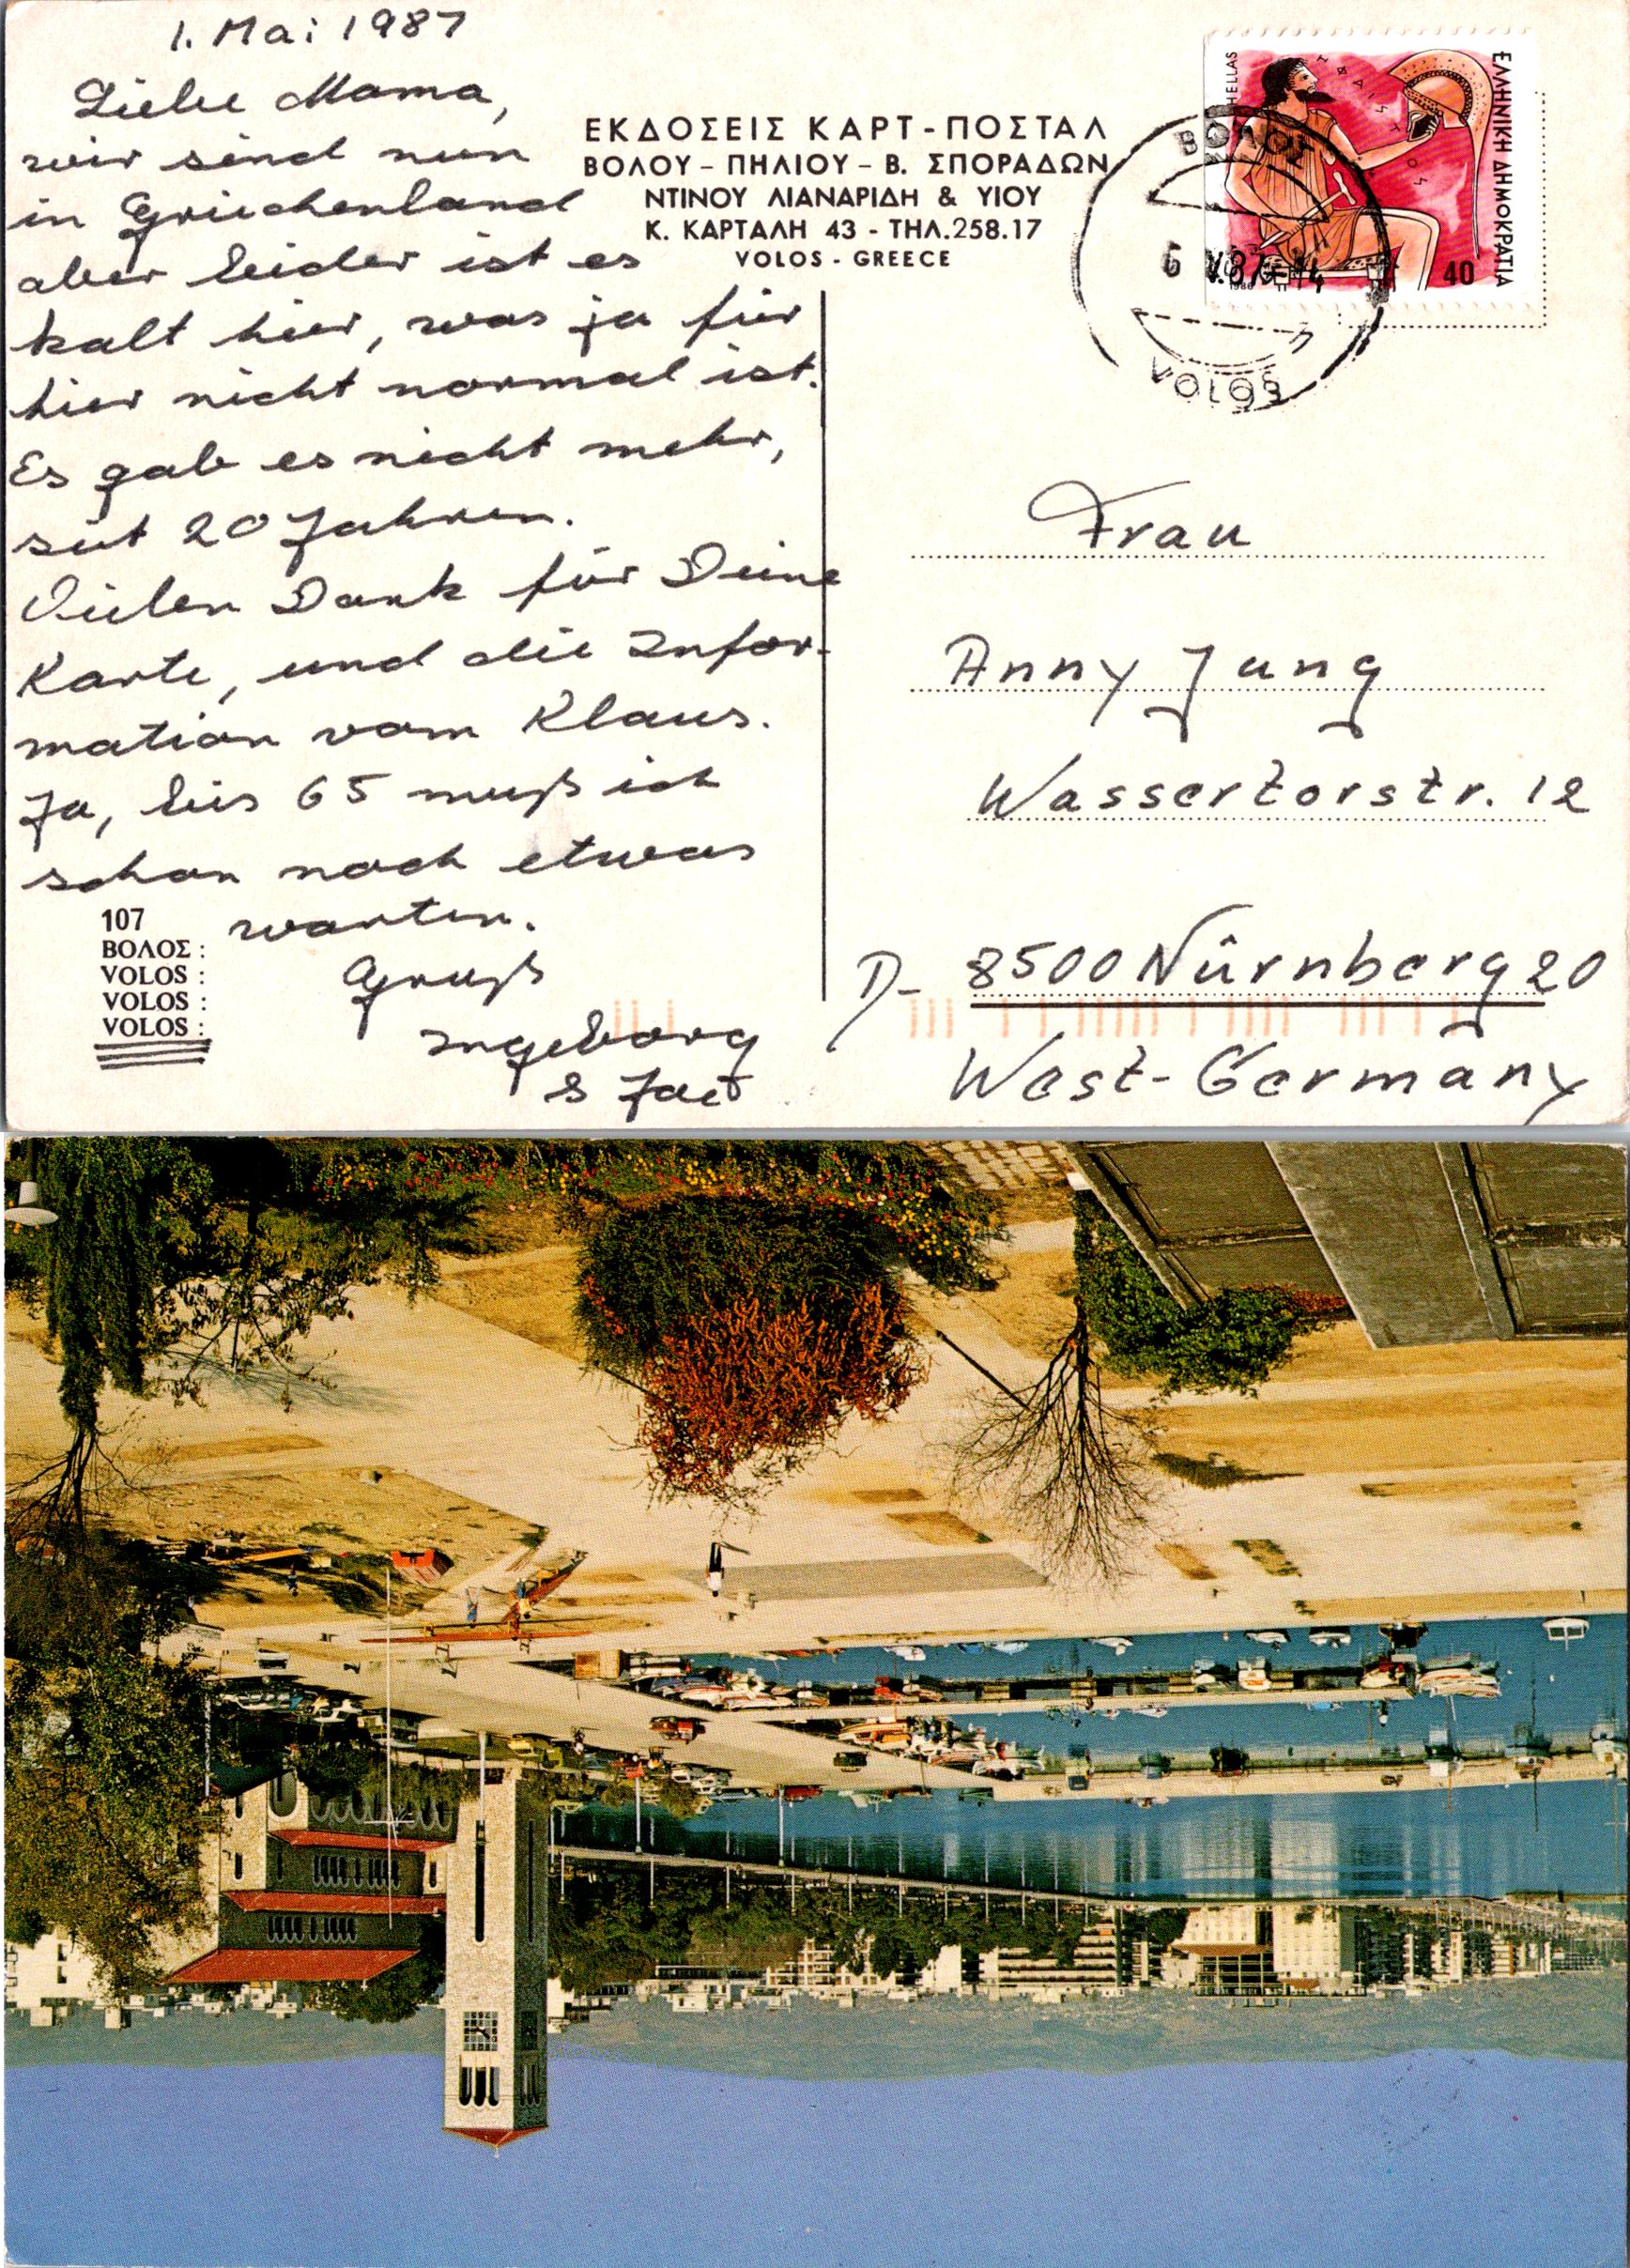 1. Mai 1987
Liebe Mama,
wir sind nun
in Griechenland
aber leider ist es
kalt hier, was ja für
hier nicht normal ist.
Es gab es nicht mehr,
seit 20 Jahren.
Vielen Dank für Deine
Karte, und die Infor-
mation vom Klaus.
Ja, bis 65 muß ich
schon noch etwas
warten.
Gruß
Ingeborg
&
107
ΒΟΛΟΣ :
VOLOS :
VOLOS :
VOLOS :
ΕΚΔΟΣΕΙΣ ΚΑΡΤ-ΠΟΣΤΑΛ
ΒΟΛΟΥ – ΠΗΛΙΟΥ – Β. ΣΠΟΡΑΔΩΝ
ΝΤΙΝΟΥ ΛΙΑΝΑΡΙΔΗ & ΥΙΟΥ
Κ. ΚΑΡΤΑΛΗ 43 - ΤΗΛ.258.17
VOLOS - GREECE
HELLAS
ΗΦΑΙΣΤΟΣ
ΕΛΛΗΝΙΚΗ ΔΗΜΟΚΡΑΤΙΑ
40
1986
ΒΟΛΟΣ
6 V.87-14
Frau
Anny Jung
Wassertorstr. 12
D- 8500 Nürnberg 20
West-Germany